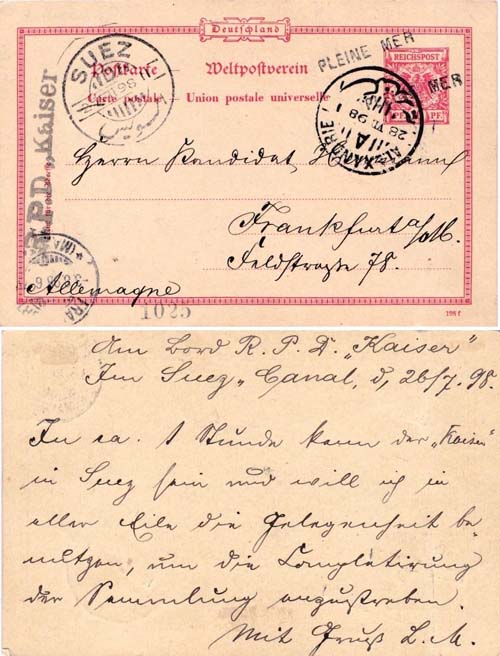 Deutschland
PLEINE MER
MER
REICHSPOST
PF.
Postkarte Weltpostverein
Carte postale Union postale universelle
SUEZ
ALEXANDRIE
28 VII 98
R.P.D. „Kaiser"
Herrn Kandidat
Frankfurt a/M.
Feldstraße 78.
Allemagne
1025
198 f
Am Bord R. P. D. „Kaiser"
Im Suez „Canal, d, 26/7. 98.
In ca. 1 Stunde kann der „Kaiser"
in Suez sein und will ich in
aller Eile die Gelegenheit be-
nutzen, um die Completirung
der Sammlung anzustreben.
Mit Gruß L. M.